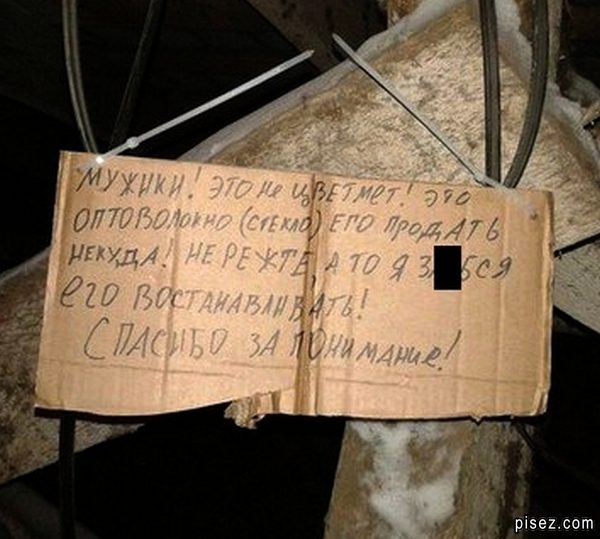 МУЖИКИ! ЭТО НЕ ЦВЕТМЕТ! ЭТО
ОПТОВОЛОКНО (СТЕКЛО) ЕГО ПРОДАТЬ
НЕКУДА! НЕ РЕЖТЕ, А ТО Я З БСЯ
ЕГО ВОСТАНАВЛИВАТЬ!
СПАСИБО ЗА ПОНИМАНИЕ!
pisez.com